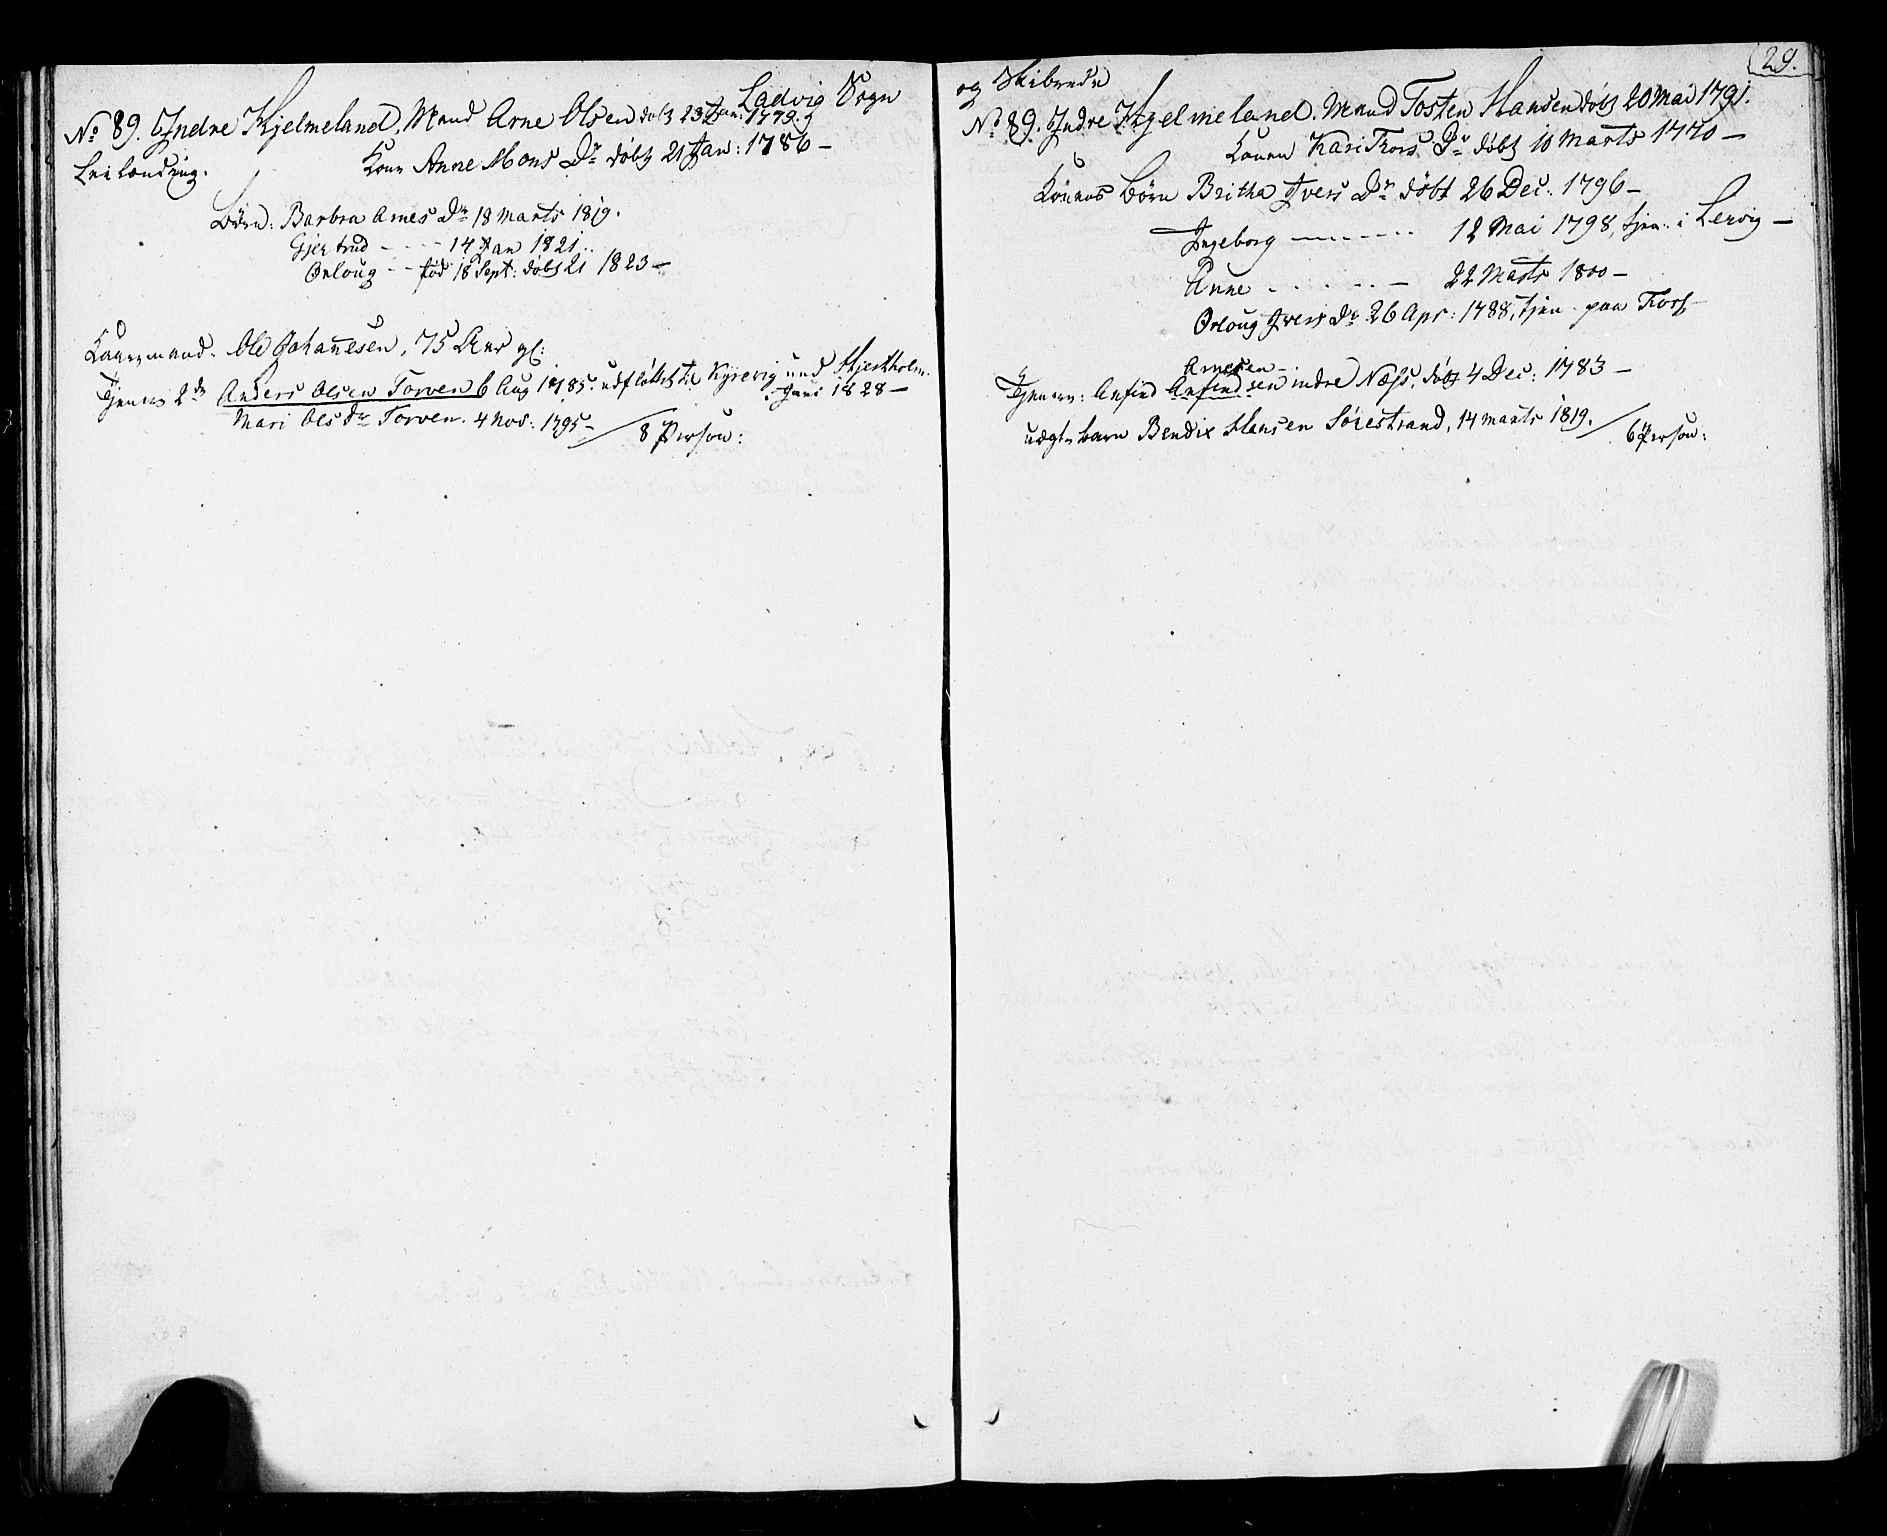 Ladvig Sogn
No 89. Indre Kjelmeland, Mand Arne Olsen døbt 23 Jan: 1779.
Leilænding.
Kone Anne Mons Dr døbt 21 Jan: 1786 –
Børn: Barbra Arnes Dr 18 Marts 1819.
Gjertrud - - - - 14 Jan 1821.
Orloug - - fød 18 Sept: døbt 21 1823 –
Kaarmand. Ole Johañesen, 75 Aar gl:
Tjener 2de Anders Olsen Torven 6 Aug 1785. udfløttet til Kyrevig und Hjertholm.
Juni 1828 –
Mari Ols Dr Torven. 4 Nov: 1795 – / 8 Person:
og Skibrede
29.
No 89. Indre Kjelmeland. Mand Tosten Hansen døbt 20 Mai 1791.
Konen Kari Thors Dr døbt 10 Marts 1770 –
Konens Børn Britha Ivers Dr døbt 26 Dec: 1796 –
Ingeborg - - - - - - 12 Mai 1798, tjen: i Lervig –
Anne - - - - - 22 Marts 1800 –
Orloug Ivers Dr 26 Apr: 1788, tjen. paa Torf –
Arnesen –
Tjenere: Anfind Anfindsen indre Næss, døbt 4 Dec: 1783 –
uægte barn Bendix Hansen Sørestrand, 14 Marts 1819. / 6 Person: